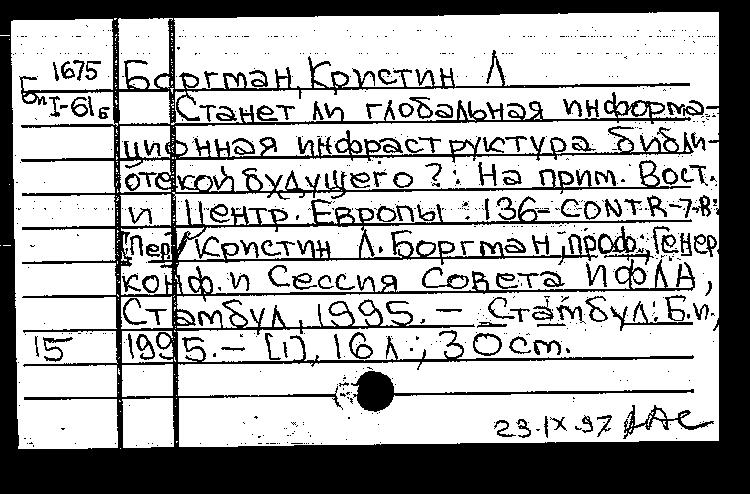 1675 Боргман, Кристин Л
Бп I-61б Станет ли глобальная информа-
ционная инфраструктура библи-
отекой будущего?: На прим. Вост.
и Центр. Европы: 136-CONTR-7-R:
[Пер] / Кристин Л. Боргман, проф.; Генер.
конф. и Сессия Совета ИФЛА,
Стамбул, 1995. – Стамбул: Б.и.,
15 1995. – [1], 16 л.; 30 cm.
29.IX.97